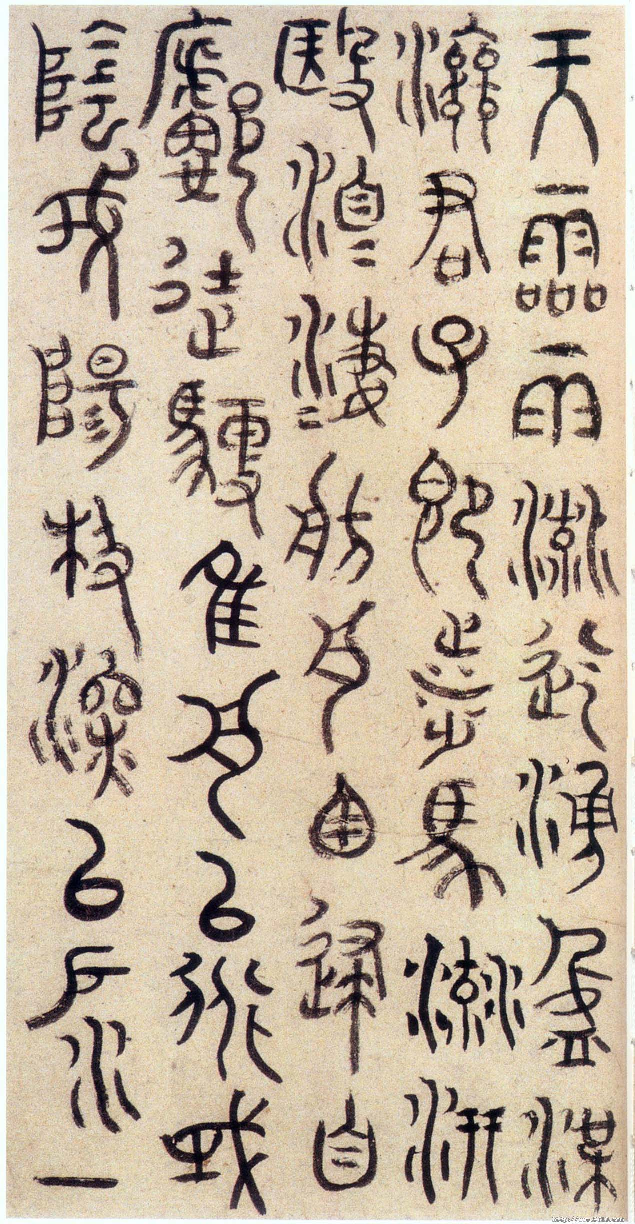 天霝雨流迄湧盈渫
濕君子即涉馬流汧
殹洎=淒=舫舟囪逮自
廓徒馭隹舟以行或
陰或陽极深以戶水一